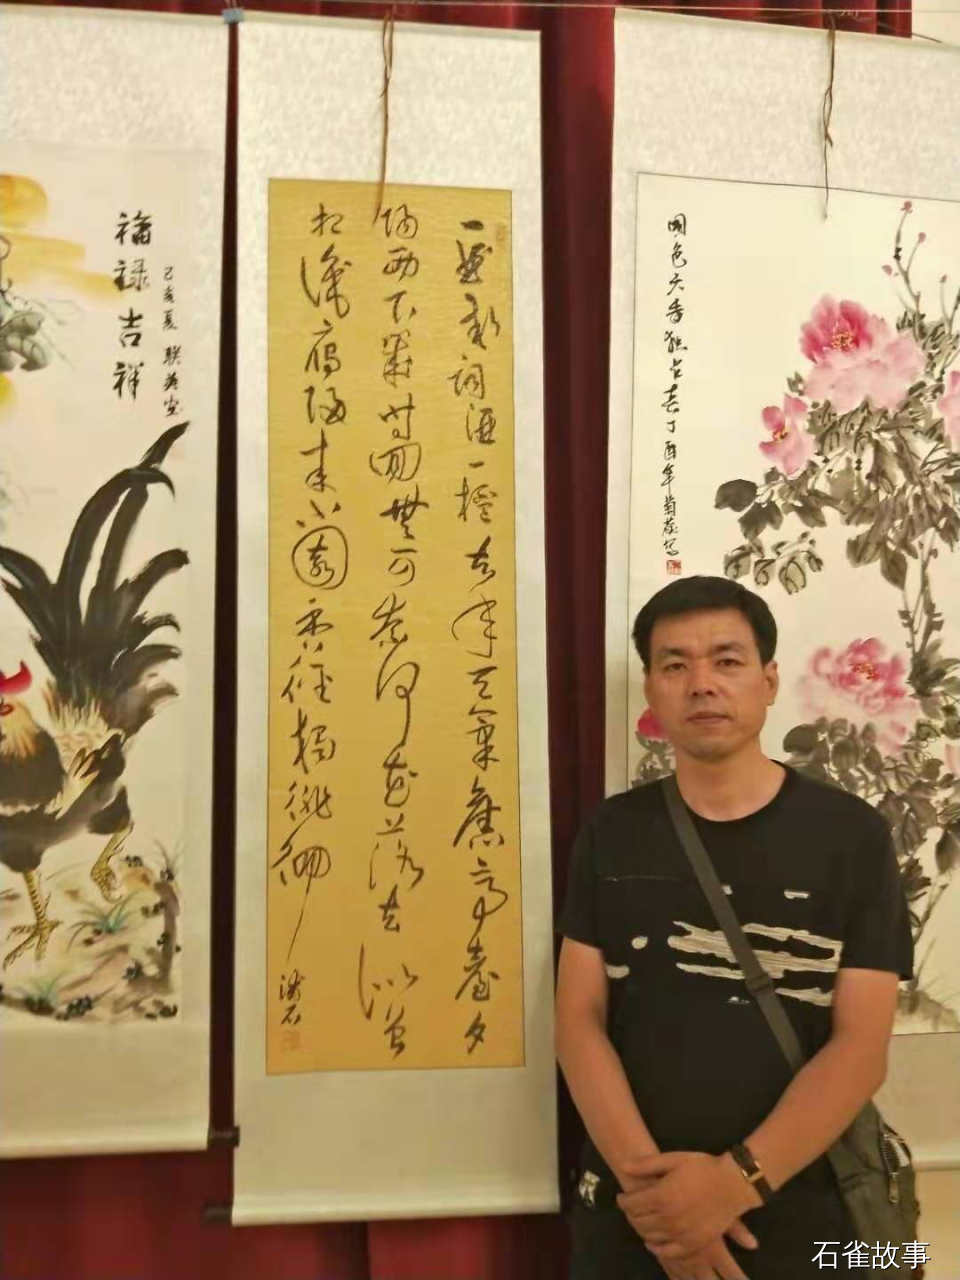 福禄吉祥
己亥夏
一曲新词酒一杯去年天气旧亭台夕
阳西下几时回无可奈何花落去似曾
相识燕归来小园香径独徘徊
国色天香独占春丁酉年菊
石雀故事